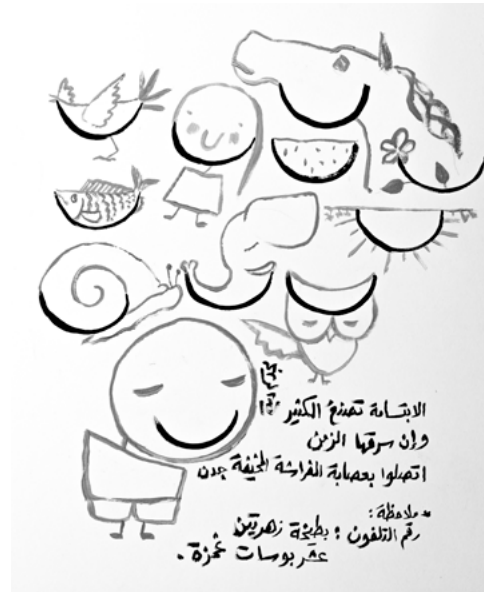 الابتسامة تصنع الكثير
وإن سرقها الزمن
اتصلوا بعصابة الفراشة المخيفة جدن
* ملاحظة:
رقم التلفون: بطيخة زهرتين
عشر بوسات غمزة.